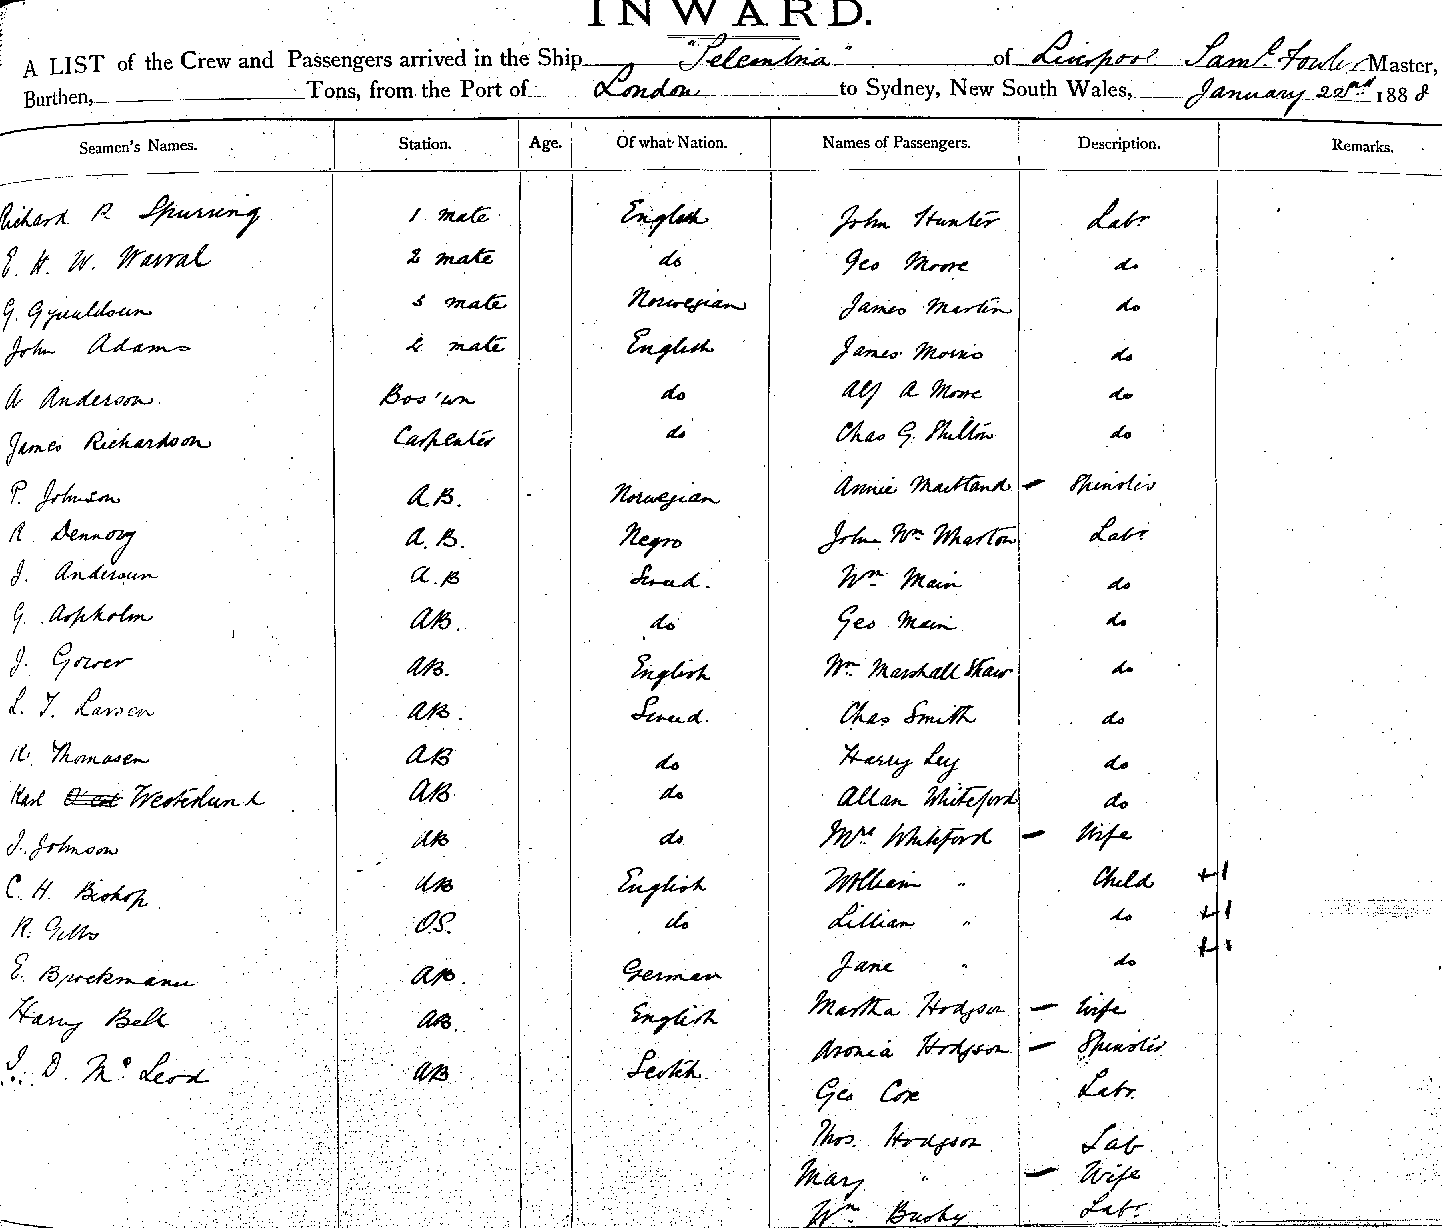 INWARD.
A LIST of the Crew and Passengers arrived in the Ship "Selembria" of Liverpool Saml. Fowler Master,
Burthen, Tons, from the Port of London to Sydney, New South Wales, January 22nd 1888
Seamen's Names. Station. Age. Of what Nation. Names of Passengers. Description. Remarks.
Richard R Spurring 1 mate English John Hunter Labr
E. H. W. Warral 2 mate do Geo Moore do
G. 3 mate Norwegian James Martin do
John Adams 2 mate English James Morris do
A Anderson. Bos'un do Alf A Moore do
James Richardson Carpenter do Chas G. Shilton do
P. Johnson A.B. Norwegian Annie Maitland – Spinster
R Dennovy A.B. Negro John Wm Wharton Labr
J. Anderson A.B Swed. Wm Main do
G. Aspholm AB. do Geo Main do
J. Gower AB. English Wm Marshall Shaw do
L. T. Larsen AB. Swed. Chas Smith do
K. Thomasen AB do Harry Ley do
Karl Westerlund AB do Allan Whiteford do
J. Johnson AB do Mrs Whiteford – Wife
C. H. Bishop. AB English William " Child +1
R. Gibbs O.S. do Lillian " do +1
E. Brockmann AB. German Jane " do +1
Harry Bell AB. English Martha Hodgson – Wife
J. D. McLeod AB Scotch Hodgson – Spinster
Geo Cox Labr.
Thos. Hodgson Lab
Mary " – Wife
Wm Busby Labr